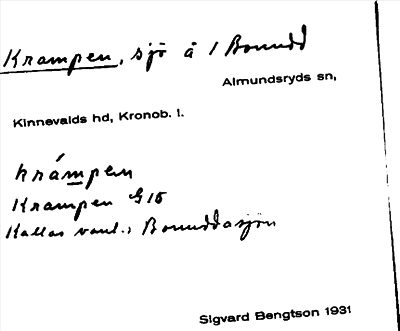 Krampen, sjö å 1 Bonudd
Almundsryds sn,
Kinnevalds hd, Kronob. l.
krámpen
Krampen G 15
Kallas vanl.: Bonuddasjön
Sigvard Bengtson 1931